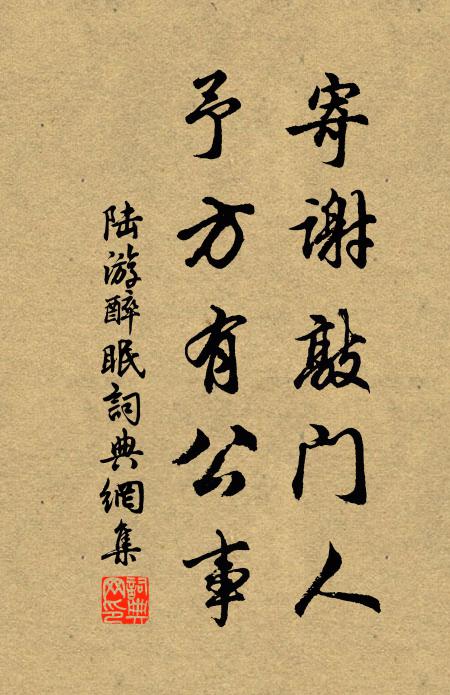 寄谢敲门人
予方有公事
陆游醉眠词典網集
詞典網印